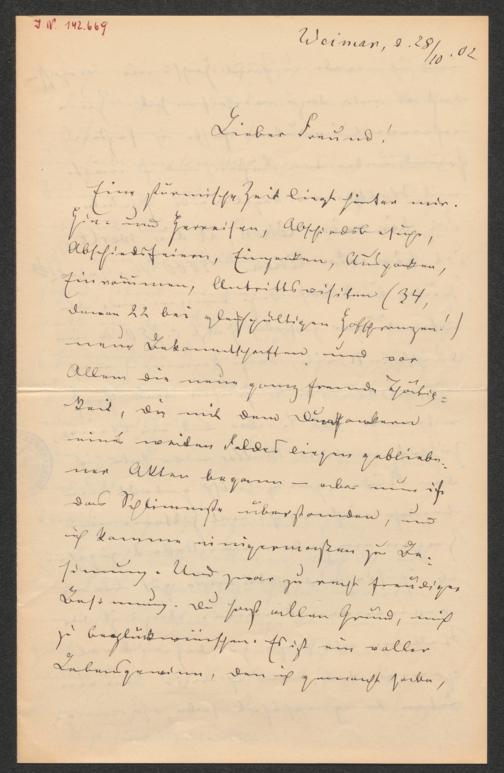 J. N. 142.669
Weimar, d. 28/10. 02
Lieber Freund!
Eine stürmische Zeit liegt hinter mir.
Hin- und Herreisen, Abschiedsbesuche,
Abschiedsfeiern, Einpacken, Auspacken,
Einräumen, Antrittsvisiten (34,
davon 22 bei gleichgültigen Hofschranzen!)
neue Bekanntschaften und vor
Allem die neue ganz fremde Thätig=
keit, die mit dem Durchackern
eines weiten Feldes liegen gebliebe-
ner Akten begann – aber nun ist
das Schlimmste überstanden, und
ich komme einigermaßen zu Be-
sinnung. Und zwar zu recht freudiger
Besinnung. Du hast allen Grund, mich
zu beglückwünschen. Es ist ein voller
Lebensgewinn, den ich gemacht habe,